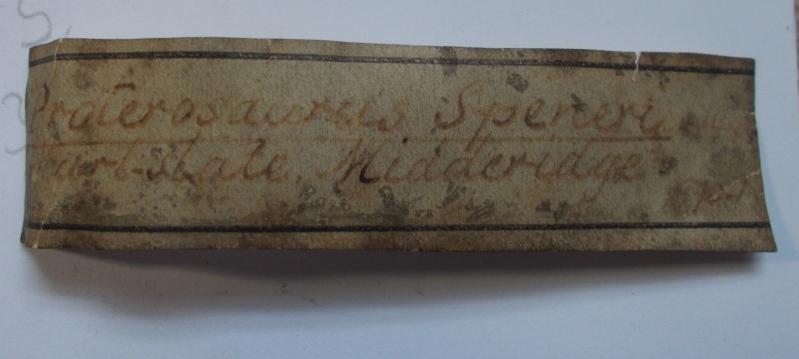 Proterosaurus Speneri,
Marl-slate, Midderidge